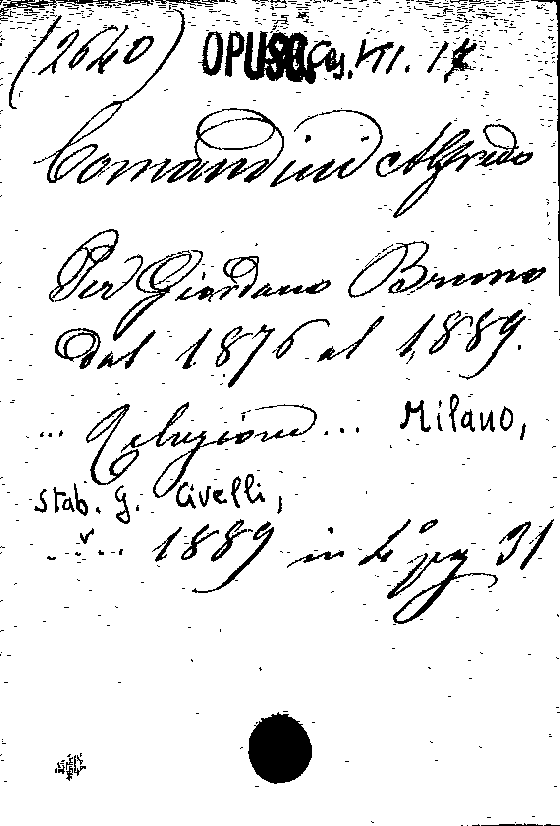 (2640) OPUSC. Cas. VII. 17
Comandini Alfredo
Per Giordano Bruno
dal 1876 al 1889.
... Relazione... Milano,
stab. G. Civelli,
1889 in 4° pg 31